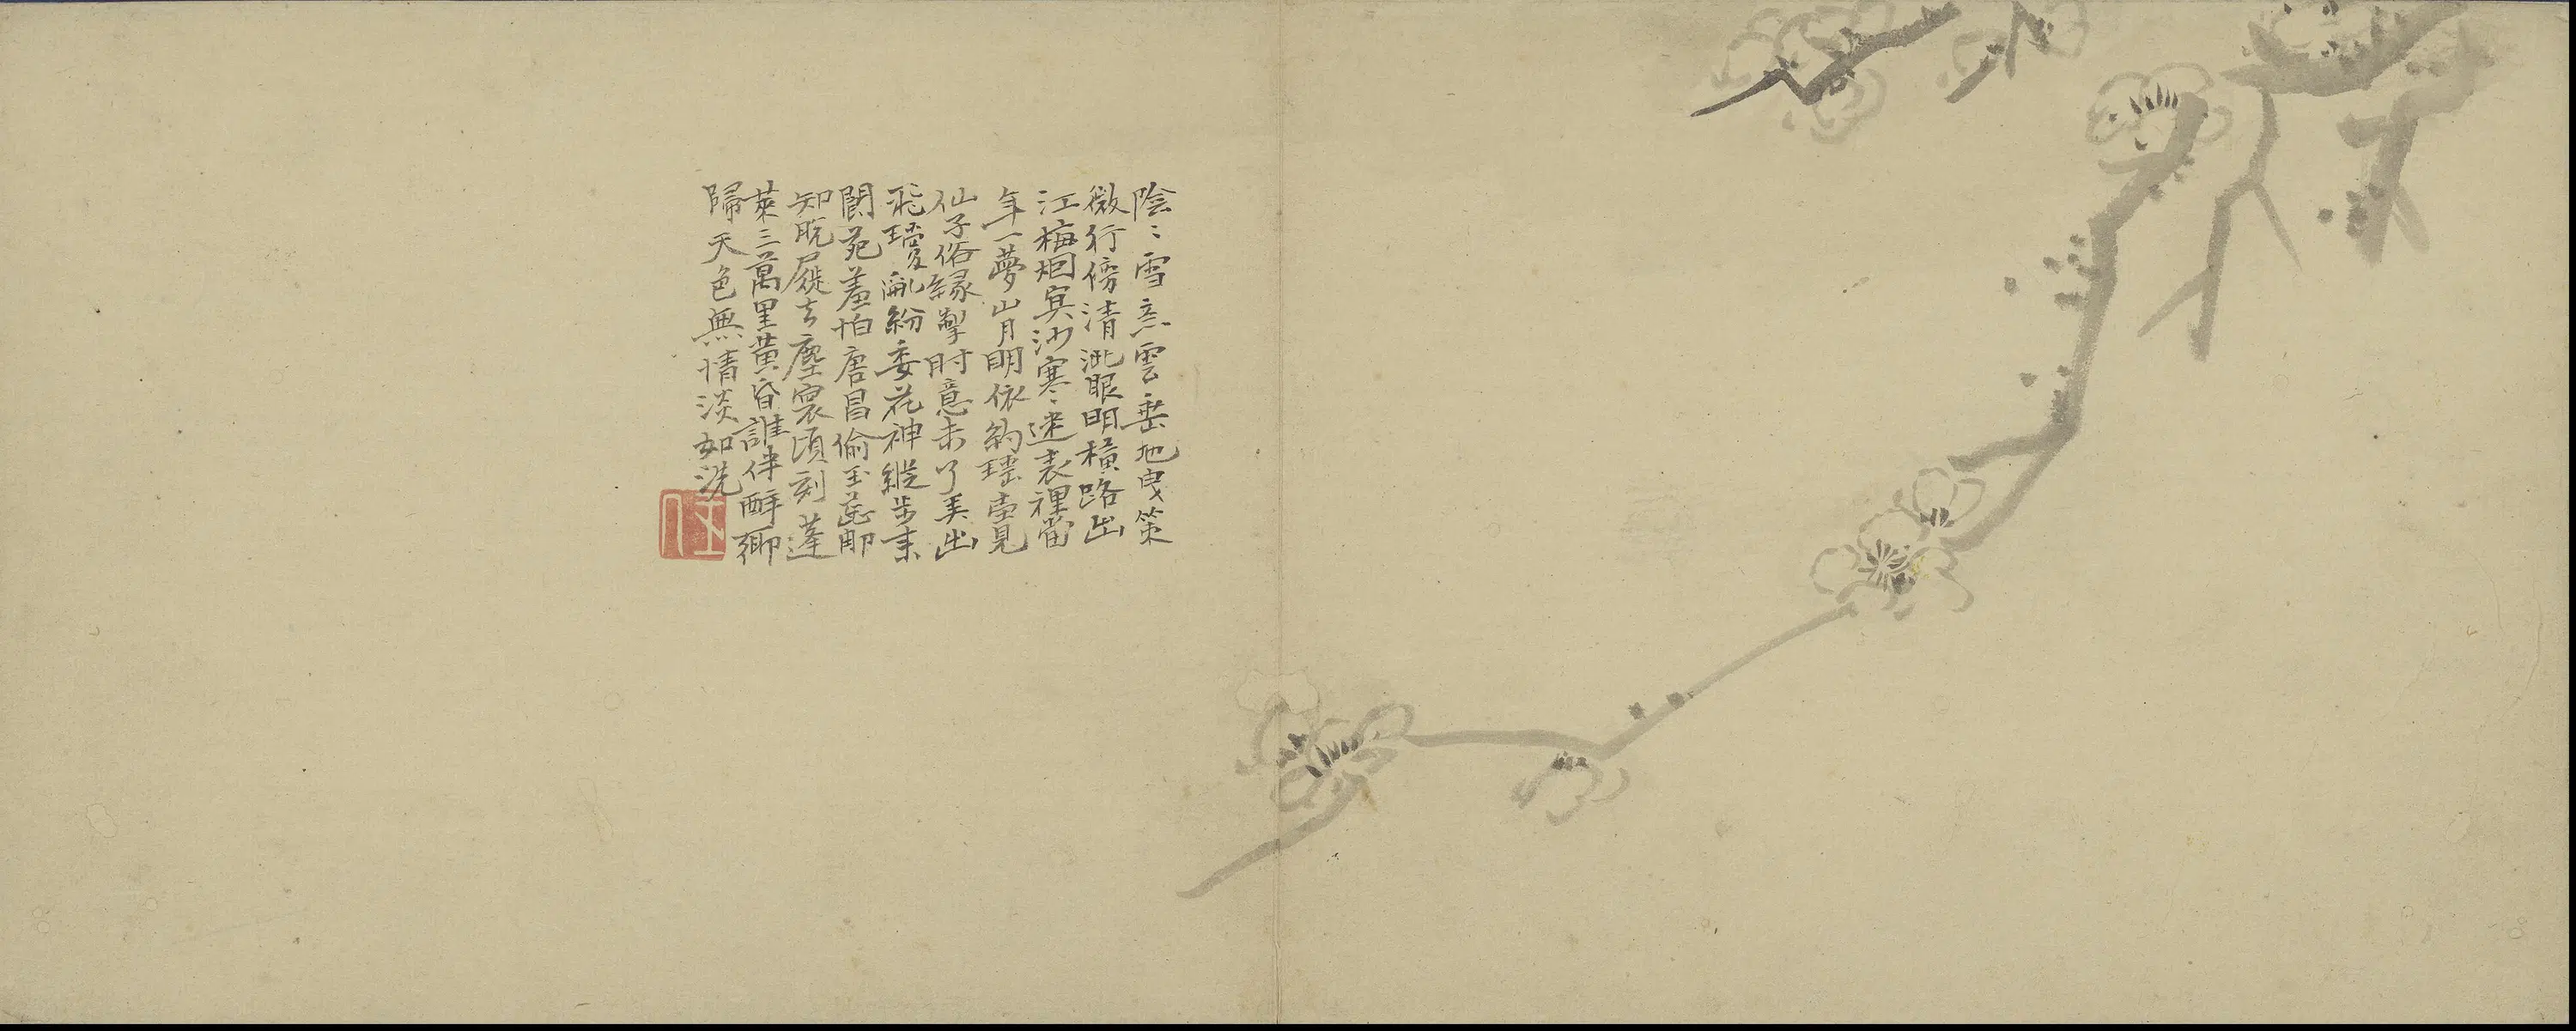 陰〻雪意雲垂地曳策
微行傍清泚眼明橫路出
江梅烟冥沙寒〻迷表裡當
年一夢山月明依約瑤臺見
仙子俗緣掣肘意未了美出
飛瓊亂紛委花神縱步來
閬苑羞怕唐昌偷玉蕊那
知脫屣去塵寰頃刻蓬
萊三萬里黃昏誰伴醉鄉
歸天色無情淡如洗